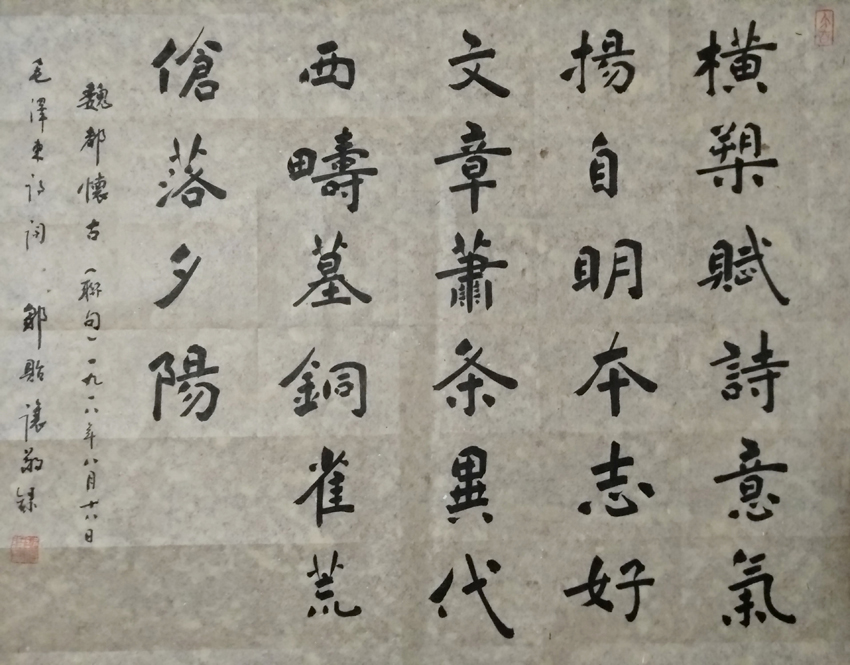 橫槊賦詩意氣
揚自明本志好
文章蕭条異代
西疇墓銅雀荒
傖落夕陽
魏都懷古（聯句）一九一八年八月十八日
毛澤東詩詞 鄒貽讓敬錄